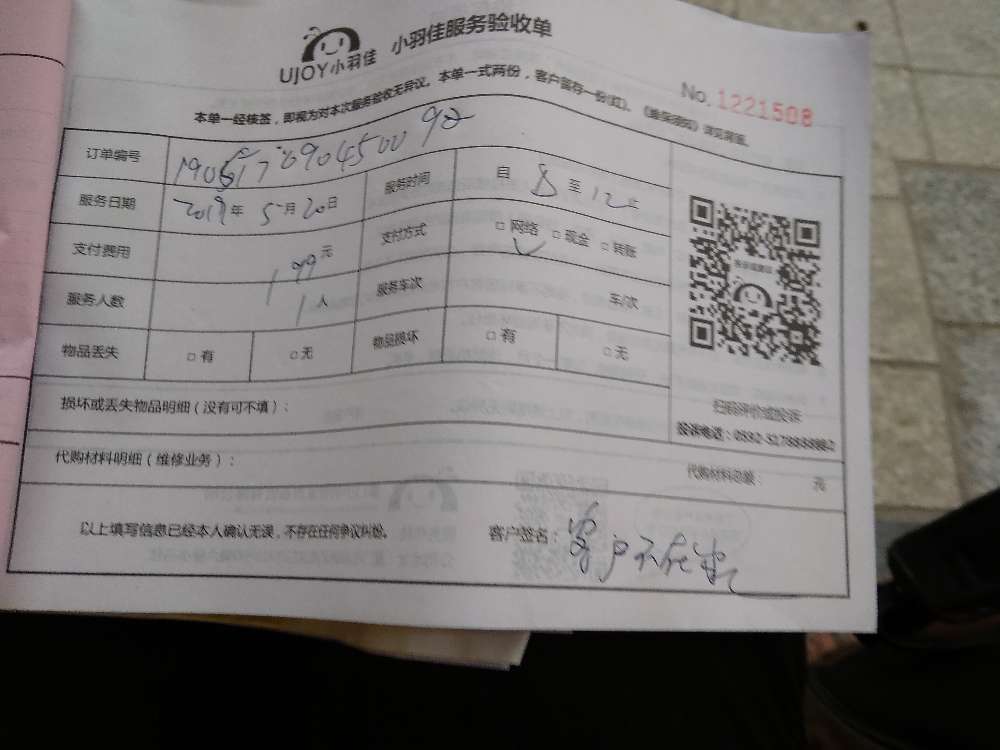 UJOY小羽佳 小羽佳服务验收单
No.1221508
本单一经核签，即视为对本次服务验收无异议。本单一式两份，客户留存一份(红)。
订单编号
服务日期 2019年5月20日 服务时间 自 8 至 12 止
支付费用 199元 支付方式 □网络 □现金 □转账
服务人数 1人 服务车次 车/次
物品丢失 □有 □无 物品损坏 □有 □无
扫码评价或投诉
损坏或丢失物品明细（没有可不填）：
投诉电话：
代购材料明细（维修业务）： 代购材料总额： 元
以上填写信息已经本人确认无误，不存在任何争议纠纷。 客户签名：客户不在家